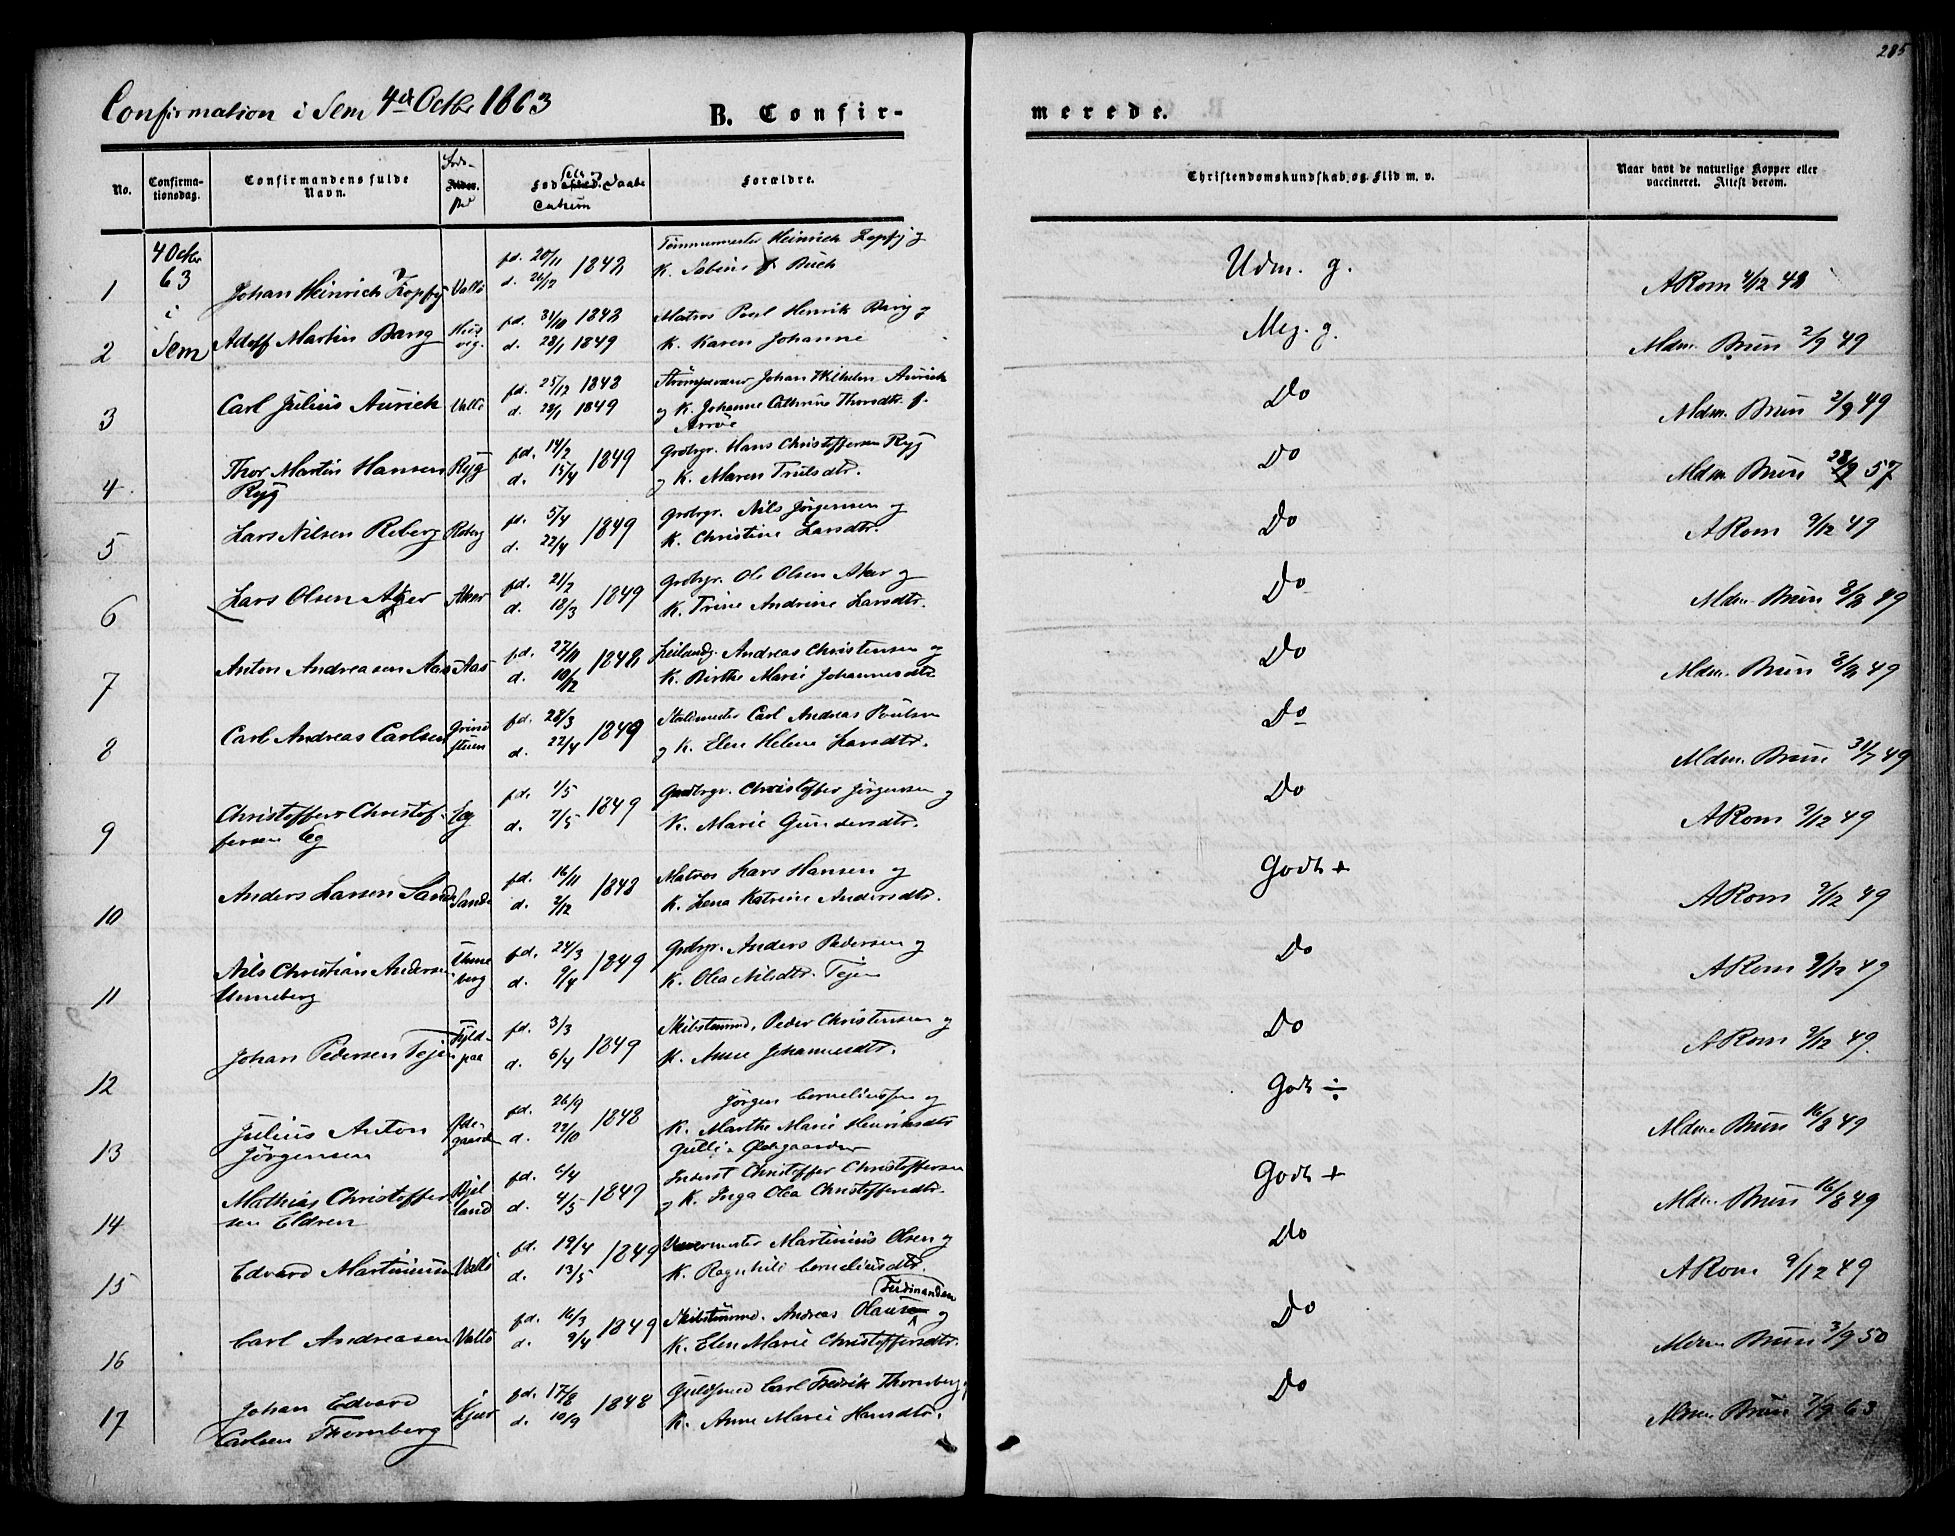 285
Confirmation i Sem 4de Octbr 1863
B. Confirmerede.
No.
Confirmationsdag.
Confirmandens fulde Navn.
Føde- sted
Føds. og Daabs Datum
Forældre.
Christendomskundskab, og Flid m. v.
Naar havt de naturlige Kopper eller vaccineret. Attest derom.
4 Octbr 63 i Sem
1 Johan Heinrich Zopfy Vallö fd. 20/11 d. 26/12 1848 Tømmermester Heinrich Zopfy og K. Sabine f. Buch Udm. g. A Rom
2 Adolf Martin Bang fd. 31/10 1848 d. 28/1 1849 Matros Poul Henrik Bang og K. Karen Johanne Meg. g. Mdm. Brun 2/9 49
3 Carl Julius Aurich Vallö fd. 25/12 1848 d. 28/1 1849 Strømpevæver Johan Wilhelm Aurich og K. Johanne Cathrine Thorsdtr. f. Arröe Do Mdm. Brun 2/9 49
4 Thor Martin Hansen Ryg Ryg fd. 14/2 d. 15/4 1849 Grdbrgr. Hans Christoffersen Ryg og K. Maren Trulsdtr. Do Mdm Brun 28/9 57
5 Lars Nilsen Reberg Reberg fd. 5/4 d. 22/4 1849 Grdbrgr. Nils Jörgensen og K. Christine Larsdtr. Do A Rom 9/12 49
6 Lars Olsen Aker Aker fd. 21/2 d. 18/3 1849 Grdbrgr. Ole Olsen Aker og K. Trine Andrine Larsdtr. Do Mdm. Brun 49
7 Anton Andreasen Aas Aas fd. 27/11 d. 10/12 1848 Leilændg. Andreas Christensen og K. Birthe Marie Johannesdtr Do Mdm. Brun 49
8 Carl Andreas Carlsen fd. 28/3 d. 22/4 1849 Staldmester Carl Andreas Poulsen og K. Elen Helene Larsdtr. Do Mdm. Brun 31/7 49
9 Christoffer Christoffersen Eg Eg fd. 1/5 d. 7/5 1849 Grdbrgr. Christoffer Jörgensen og K. Marie Gundersdtr. Do A Rom 9/12 49
10 Anders Larsen Sande Sande fd. 16/11 d. 2/12 1848 Matros Lars Hansen og K. Lena Katrine Andersdtr. Godt + A Rom 9/12 49
11 Nils Christian Andersen Unneberg Unneberg fd. 24/3 d. 9/4 1849 Grdbrgr. Anders Pedersen og K. Olea Nilsdtr. Tejen Do A Rom 9/12 49
12 Johan Pedersen Tejen fd. 3/3 d. 6/4 1849 Skibstømmd. Peder Christensen og K. Anne Johannesdtr. Do A Rom 9/12 49.
13 Julius Anton Jörgensen Ødegaard fd. 26/9 d. 22/10 1848 Jörgen Corneliussen og K. Marthe Marie Henriksdtr Gulli - Ødegaarden Godt ÷ Mdme Brun 16/8 49
14 Mathias Christoffersen Eldren Bjelland fd. 6/4 d. 4/5 1849 Inderst Christoffer Christoffersen og K. Inga Olea Christoffersdtr. Godt + Mdm. Brun 16/8 49
15 Edvard Martiniussen Vallö fd. 19/4 d. 13/5 1849 Martinius Olsen og K. Ragnhild Corneliusdtr. Do A Rom 9/12 49
16 Carl Andreasen Vallö fd. 16/3 d. 9/4 1849 Skibstømmd. Andreas Olausen Ferdinandsen og K. Elen Marie Christoffersdtr. Do Mdm Brun 3/9 50
17 Johan Edvard Carlsen Thornberg Kjær fd. 17/8 d. 10/9 1848 Guldsmed Carl Fredrik Thornberg og K. Anne Marie Hansdtr. Do Mdm Brun 7/9 63